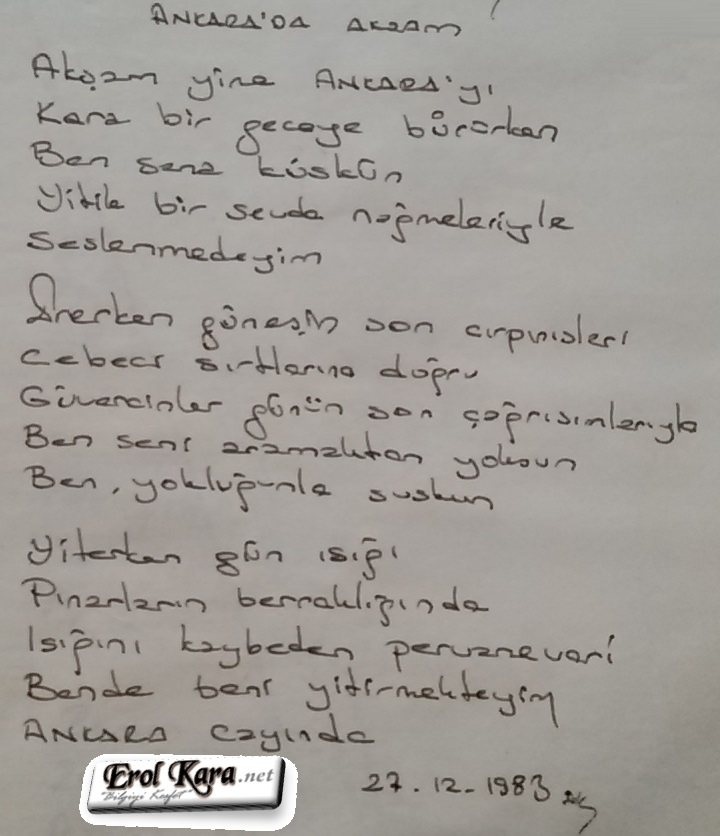 ANKARA'DA AKŞAM
Akşam yine ANKARA'yı
Kara bir geceye bürürken
Ben sana küskün
Yitik bir sevda nağmeleriyle
Seslenmedeyim
İnerken güneşin son çırpınışları
Cebeci sırtlarına doğru
Güvercinler günün son çağrışımlarıyla
Ben seni aramaktan yoksun
Ben, yokluğunla suskun
Yiterken gün ışığı
Pınarların berraklığında
Işığını kaybeden pervanevari
Bende beni yitirmekteyim
ANKARA çayında
27.12.1983
Erol Kara.net
"Bilgiyi Keşfet"